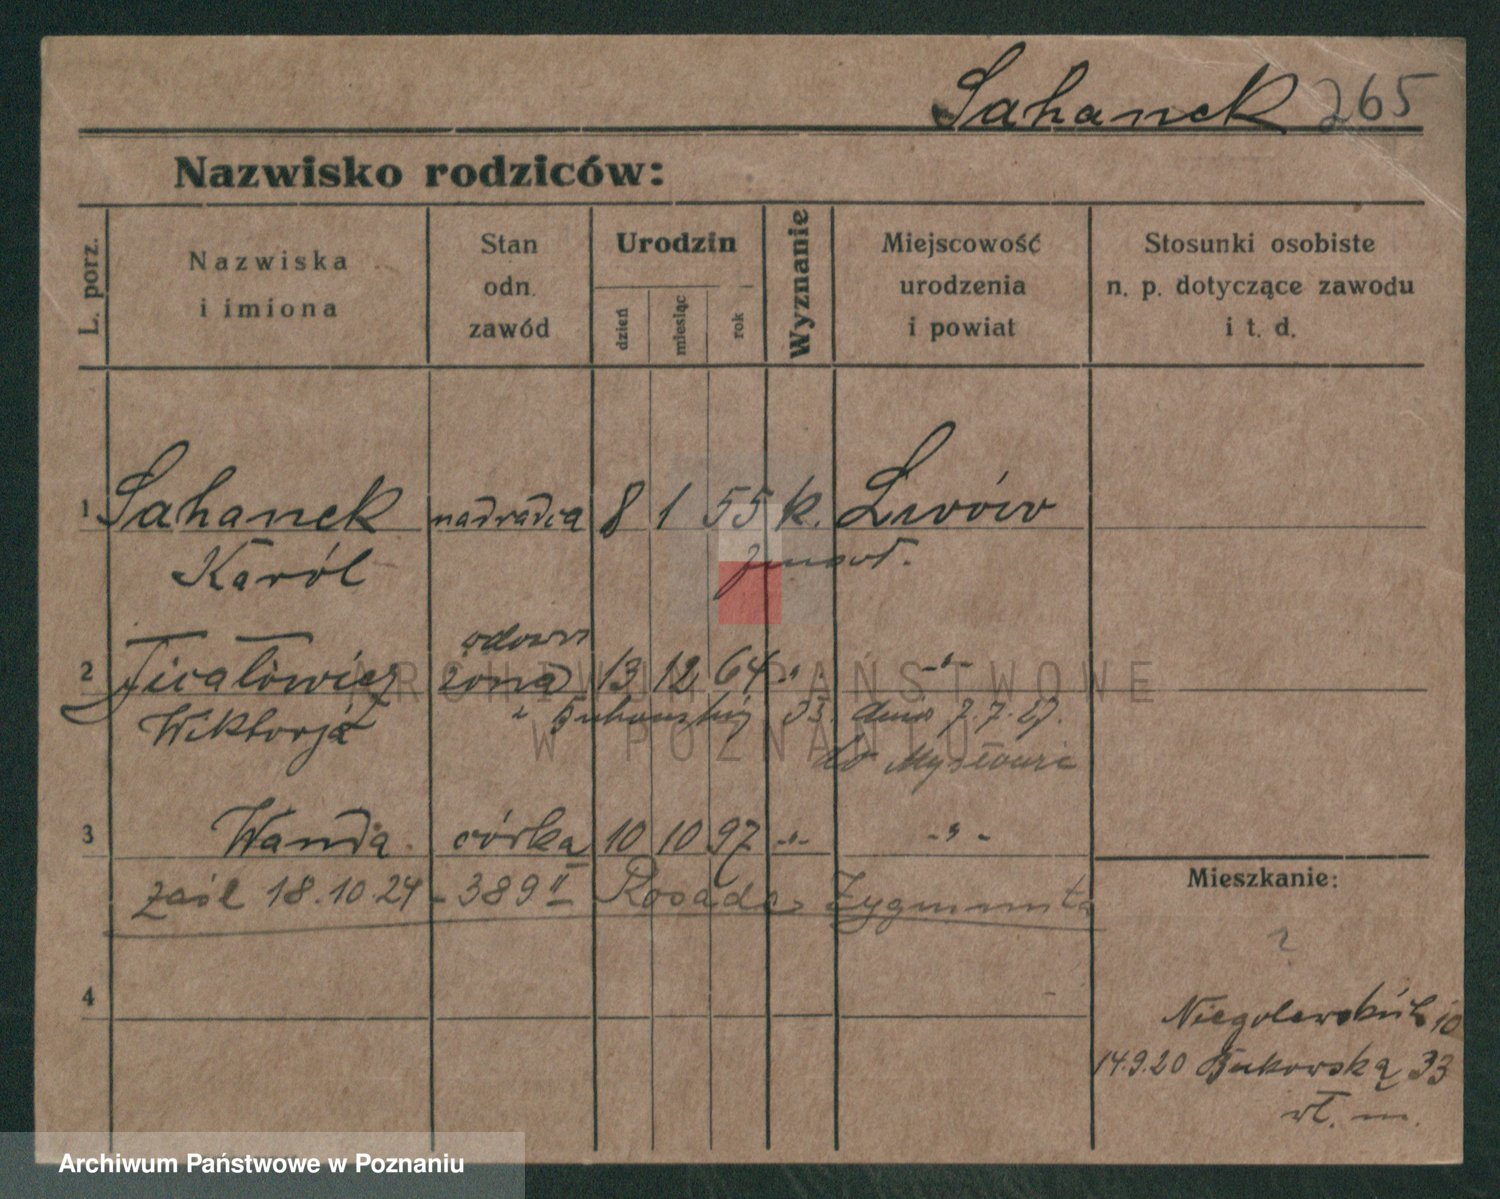 Sahanek 265
Nazwisko rodziców:
L. porz.
Nazwiska
i imiona
Stan
odn.
zawód
Urodzin
dzień
miesiąc
rok
Wyznanie
Miejscowość
urodzenia
i powiat
Stosunki osobiste
n. p. dotyczące zawodu
i t. d.
1 Sahanek nadradca 8 1 55 k. Lwów
Karól zmarł.
2 żona 13 12 64 -"- -"-
Wiktorja z 33. dnia 7.7.27.
do
3 Wanda córka 10 10 97 -"- -"-
zaśl 18.10.24 - 389 II Zygmunta
Mieszkanie:
?
4
Niegolewskich 10
14.9.20 Bukowska 33
wł. m.
ARCHIWUM PAŃSTWOWE
W POZNANIU
Archiwum Państwowe w Poznaniu